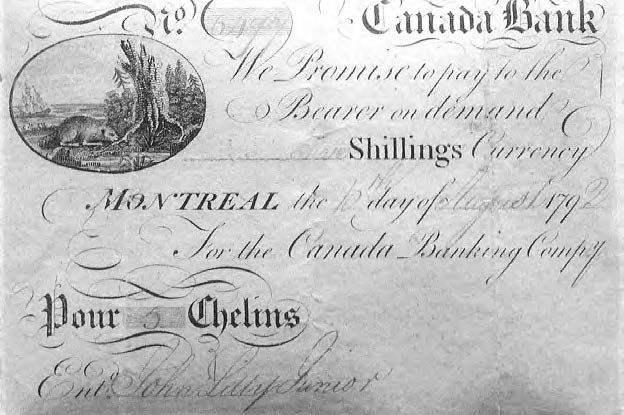 No. 547 Canada Bank
We Promise to pay to the
Bearer on demand
Shillings Currency
MONTREAL the 10th day of August 1792
For the Canada Banking Compy
Pour 5 Chelins
Entd. John Lilly Junior